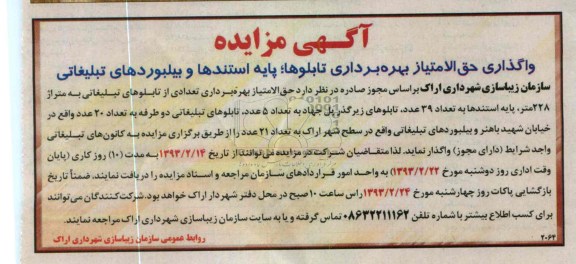 آگهی مزایده
واگذاری حق‌الامتیاز بهره‌برداری تابلوها؛ پایه استندها و بیلبوردهای تبلیغاتی
سازمان زیباسازی شهرداری اراک براساس مجوز صادره در نظر دارد حق‌الامتیاز بهره‌برداری تعدادی از تابلوهای تبلیغاتی به متراژ
۲۲۸متر، پایه استندها به تعداد ۳۹ عدد، تابلوهای زیرگذر پل جهاد به تعداد ۵ عدد، تابلوهای تبلیغاتی دو طرفه به تعداد ۲۰ عدد واقع در
خیابان شهید باهنر و بیلبوردهای تبلیغاتی واقع در سطح شهر اراک به تعداد ۲۱ عدد را از طریق برگزاری مزایده به کانون‌های تبلیغاتی
واجد شرایط (دارای مجوز) واگذار نماید. لذا متقاضیان شرکت در مزایده می‌توانند از تاریخ ۱۳۹۳/۲/۱۴ به مدت (۱۰) روز کاری (پایان
وقت اداری روز دوشنبه مورخ ۱۳۹۳/۲/۲۲) به واحد امور قراردادهای سازمان مراجعه و اسناد مزایده را دریافت نمایند. ضمناً تاریخ
بازگشایی پاکات روز چهارشنبه مورخ ۱۳۹۳/۲/۲۴ راس ساعت ۱۰ صبح در محل دفتر شهردار اراک خواهد بود. شرکت‌کنندگان می‌توانند
برای کسب اطلاع بیشتر با شماره تلفن ۰۸۶۳۲۲۱۱۱۶۲ تماس گرفته و یا به سایت سازمان زیباسازی شهرداری اراک مراجعه نمایند.
روابط عمومی سازمان زیباسازی شهرداری اراک
۲۰۶۴